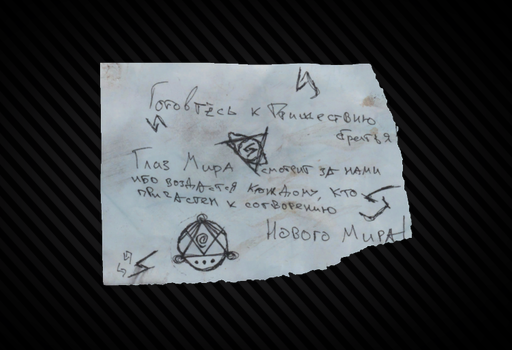 Готовтесь к Пришествию
братья
Глаз Мира смотрит за нами
ибо воздастся каждому, кто
причастен к сотворению
Нового Мира!